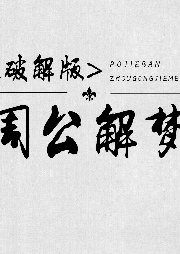 破解版>
POJIEBAN
ZHOUGONGJIEME
周公解梦